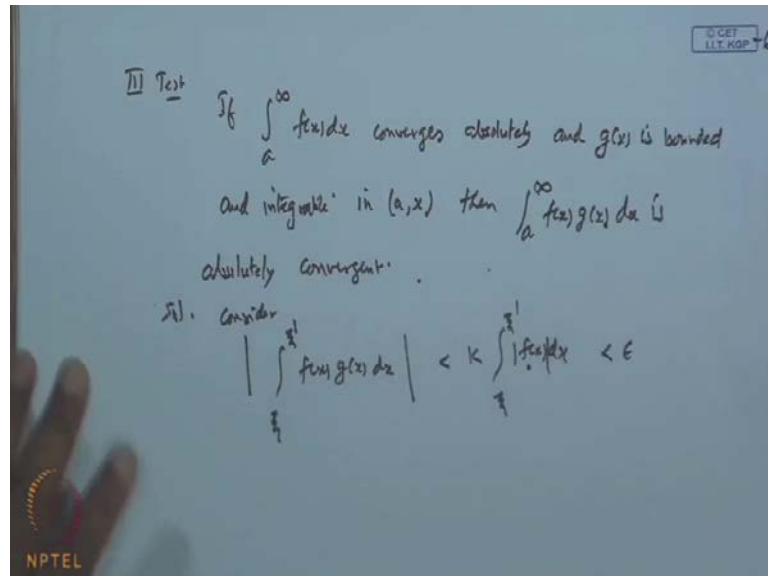 © CET
I.I.T. KGP
III Test
If ∫_a^∞ f(x) dx converges absolutely and g(x) is bounded
and integrable in (a, x) then ∫_a^∞ f(x) g(x) dx is
absolutely convergent.
Sol. Consider
| ∫_ξ^ξ' f(x) g(x) dx | < K ∫_ξ^ξ' |f(x)| dx < ε
NPTEL